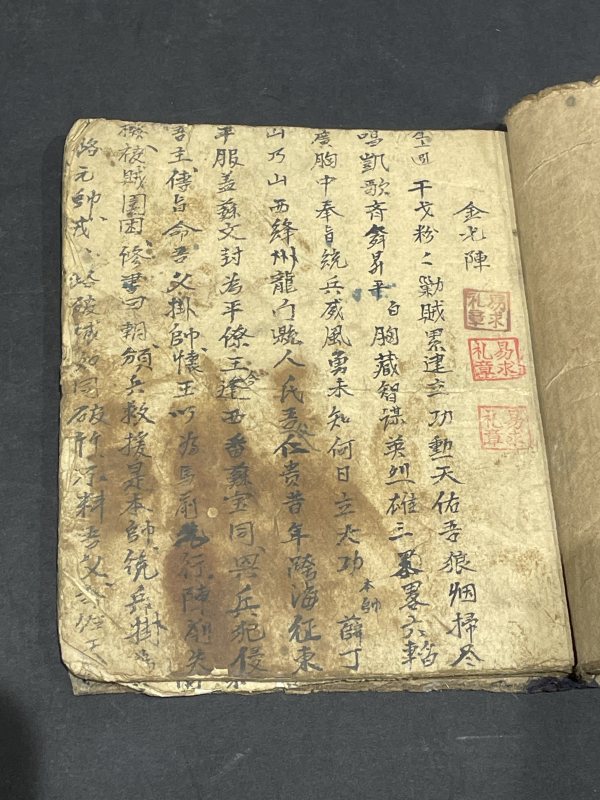 金光陣
易求礼章
易求礼章
易求礼章
干戈紛々勦賊累建立功勳天佑吾狼烟掃尽
唱凱歌齊昇平 白 胸藏智謀英烈雄三畧六韜
廣胸中奉旨統兵威風勇未知何日立大功 本帥 薛丁
山乃山西絳州龍门縣人氏父仁贵昔年跨海征東
平服盖蘇文封為平僚王逢今西番蘇宝同興兵犯侵
吾主傳旨命吾父掛帥懷王以為馬前先行陣前失
被賊圍困修書回朝頒兵救援是本帥統兵掛為
路元帥 路破城如同破竹 料 父